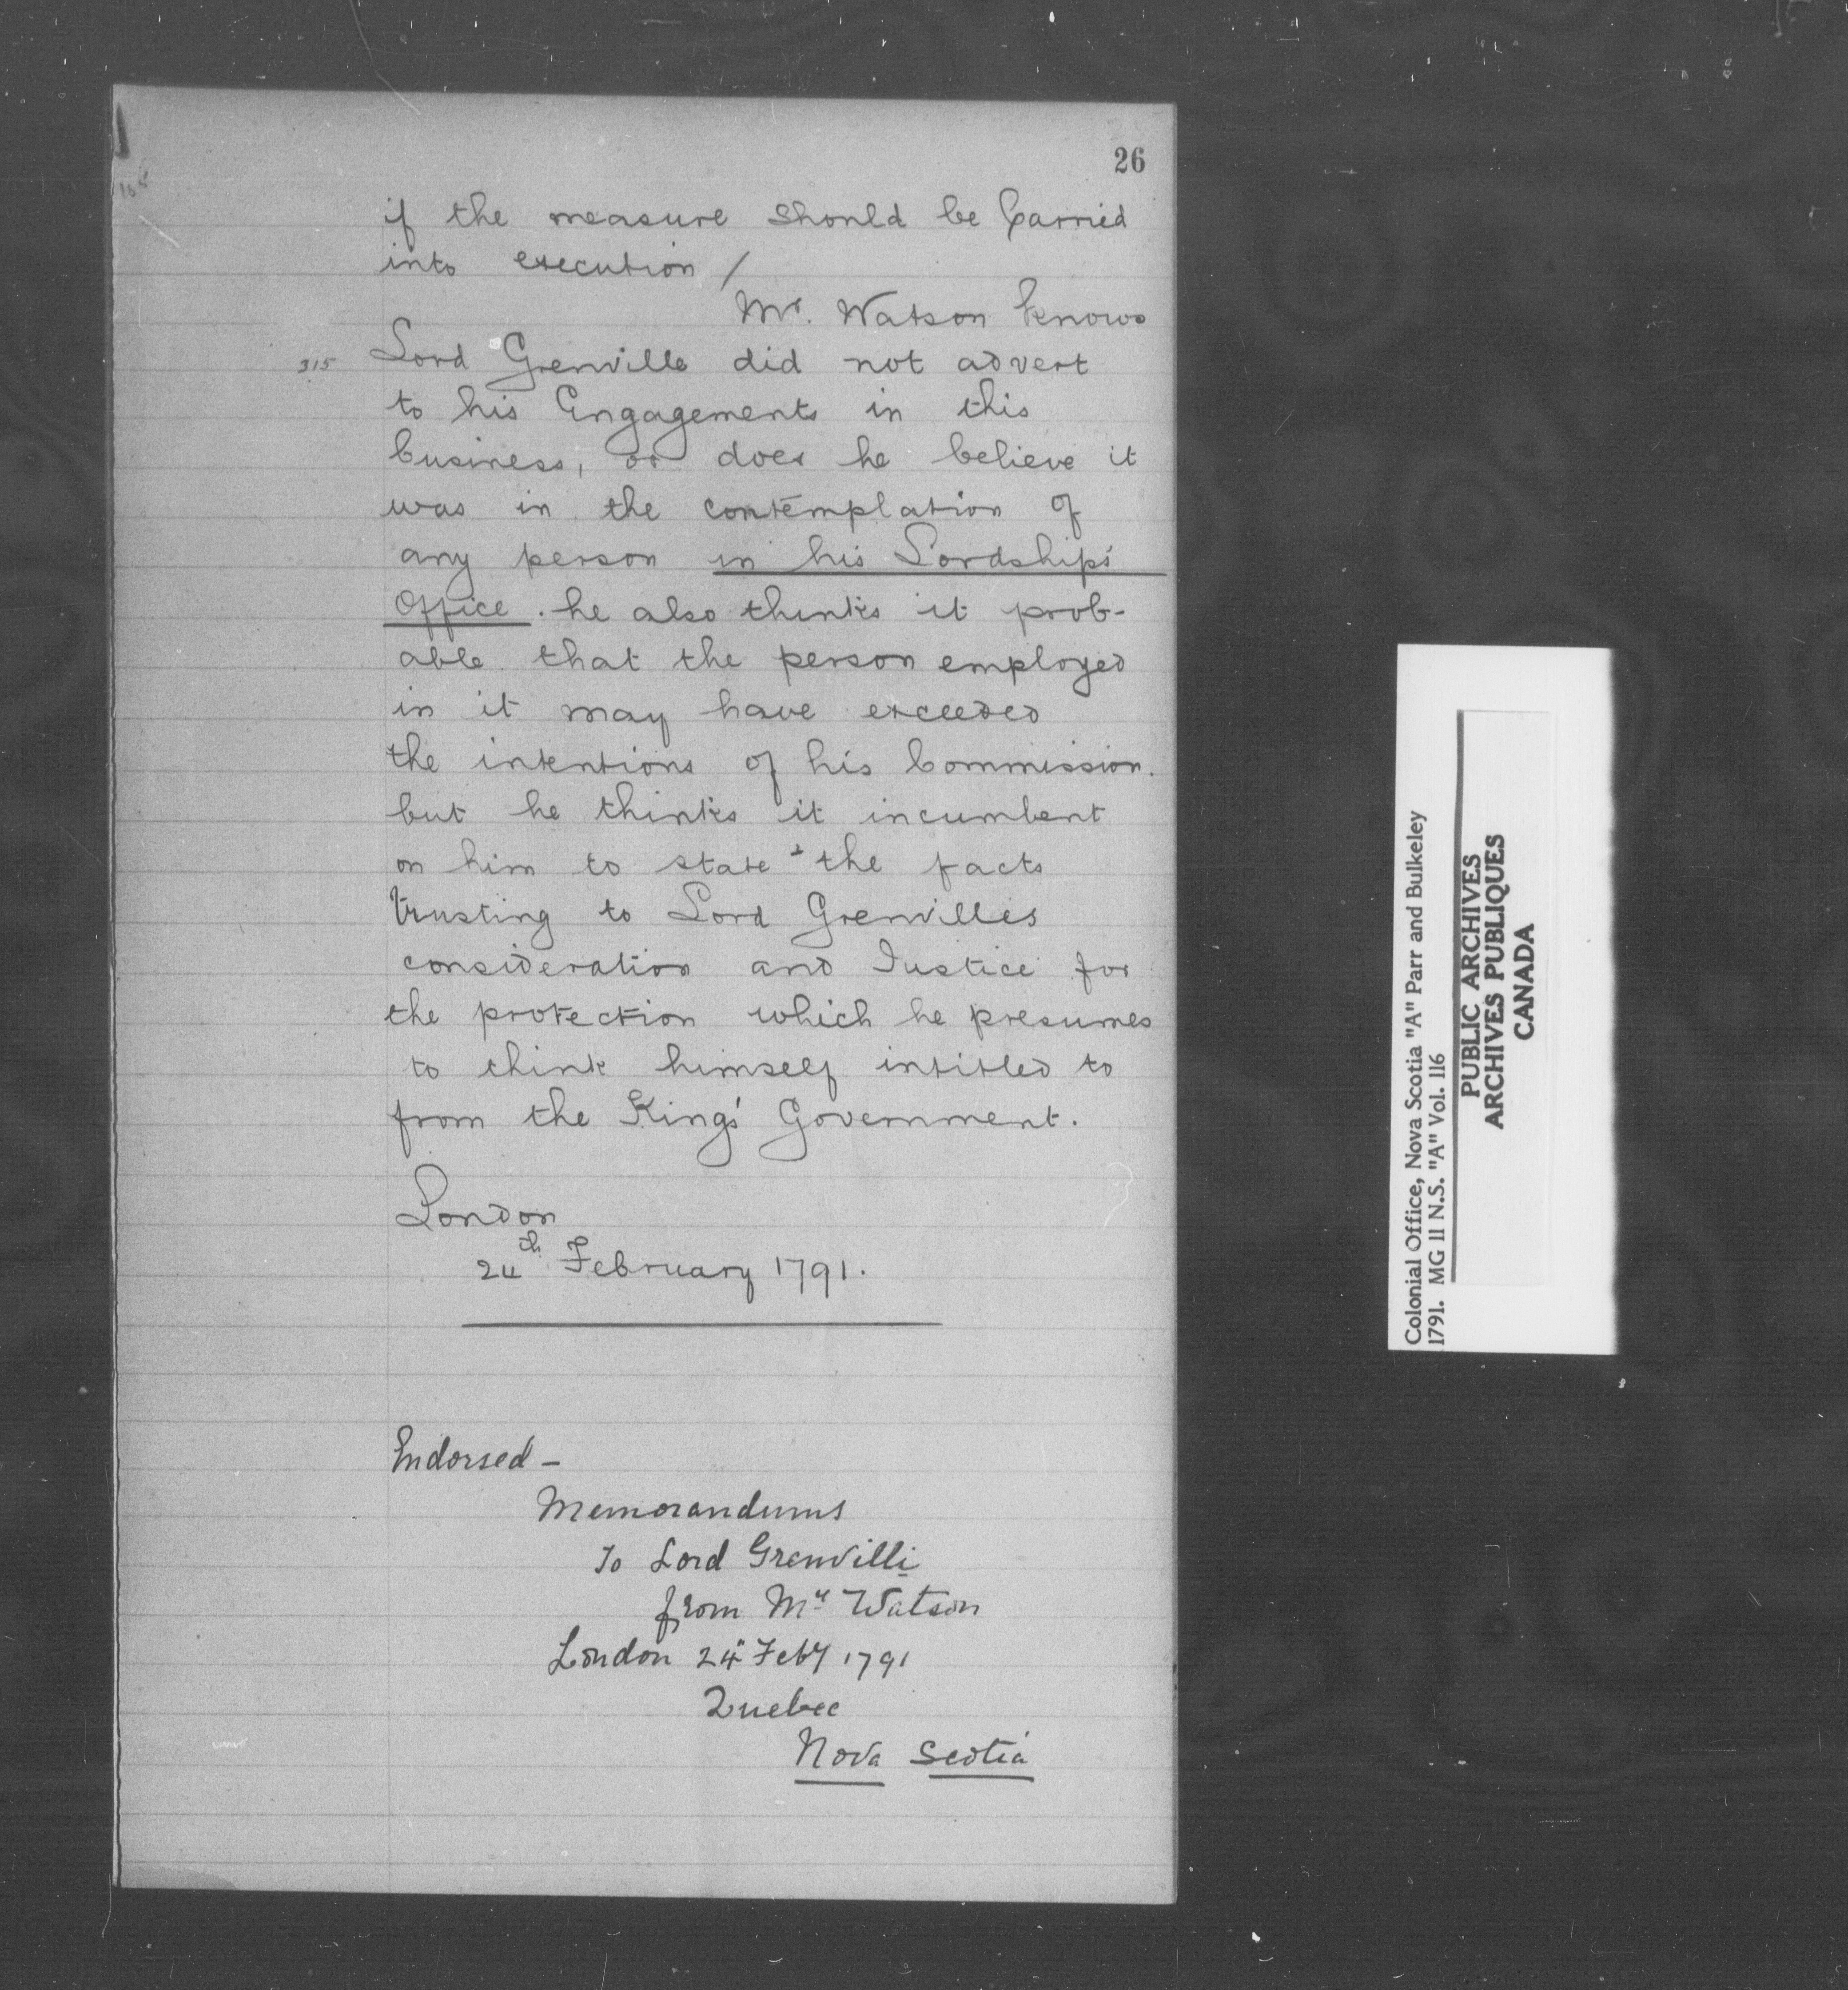 26
if the measure should be Carried
into execution /
Mr. Watson knows
315 Lord Grenville did not advert
to his Engagements in this
business, or does he believe it
was in the contemplation of
any person in his Lordship's
Office. he also thinks it prob-
able that the person employed
in it may have exceeded
the intentions of his Commission.
but he thinks it incumbent
on him to state the facts
trusting to Lord Grenvilles
consideration and Justice for
the protection which he presumes
to think himself intitled to
from the King's Government.
London
24th February 1791.
Endorsed —
Memorandums
To Lord Grenville
from Mr Watson
London 24th Feby 1791
Quebec
Nova Scotia
Colonial Office, Nova Scotia "A" Parr and Bulkeley
1791. MG 11 N.S. "A" Vol. 116
PUBLIC ARCHIVES
ARCHIVES PUBLIQUES
CANADA